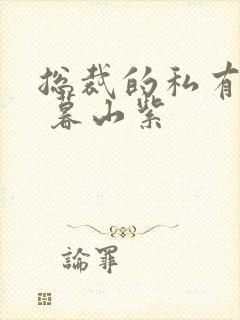 总裁的私有
暮山紫
論罪